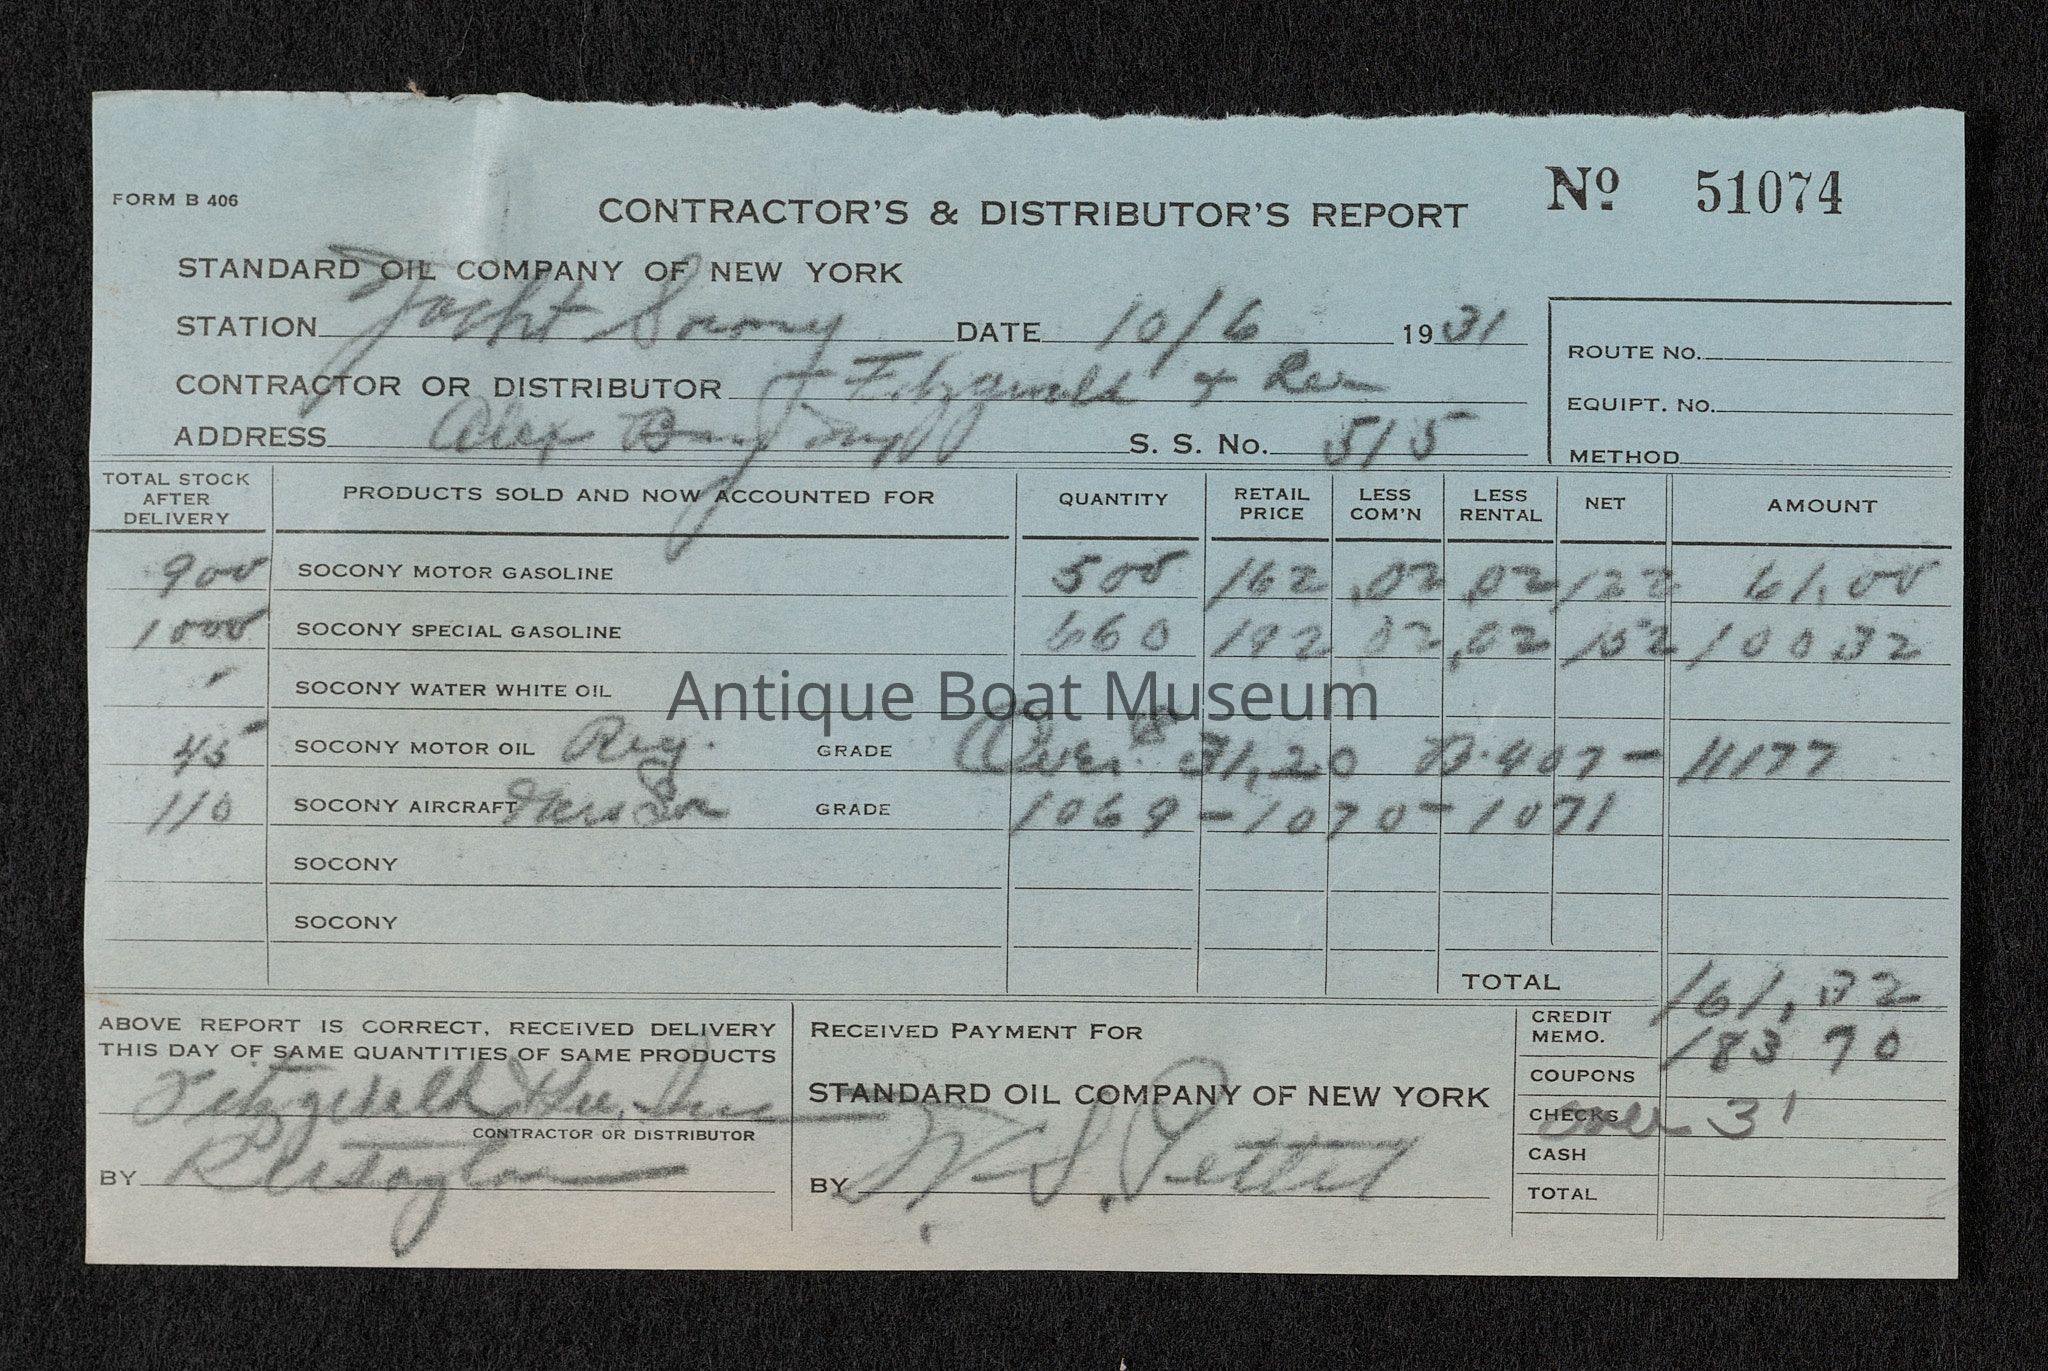 FORM B 406
CONTRACTOR'S & DISTRIBUTOR'S REPORT
No 51074
STANDARD OIL COMPANY OF NEW YORK
STATION Yacht Socony DATE 10/6 1931
ROUTE NO.
CONTRACTOR OR DISTRIBUTOR Fitzgerald & Lee
EQUIPT. NO.
ADDRESS Alex Bay S. S. No. 515
METHOD
TOTAL STOCK AFTER DELIVERY PRODUCTS SOLD AND NOW ACCOUNTED FOR QUANTITY RETAIL PRICE LESS COM'N LESS RENTAL NET AMOUNT
900 SOCONY MOTOR GASOLINE 500 162 .02 .02 122 61.00
1000 SOCONY SPECIAL GASOLINE 660 192 02 .02 152 100 32
- SOCONY WATER WHITE OIL
Antique Boat Museum
45 SOCONY MOTOR OIL Reg. GRADE Over 31,20 B.407 - 11177
110 SOCONY AIRCRAFT GRADE 1069 - 1070 - 1071
SOCONY
SOCONY
TOTAL 161.32
ABOVE REPORT IS CORRECT, RECEIVED DELIVERY
THIS DAY OF SAME QUANTITIES OF SAME PRODUCTS
Fitzgerald & Lee, Inc
CONTRACTOR OR DISTRIBUTOR
BY Taylor
RECEIVED PAYMENT FOR
STANDARD OIL COMPANY OF NEW YORK
BY W. S. Pettit
CREDIT MEMO. 183 70
COUPONS
CHECKS over 31
CASH
TOTAL